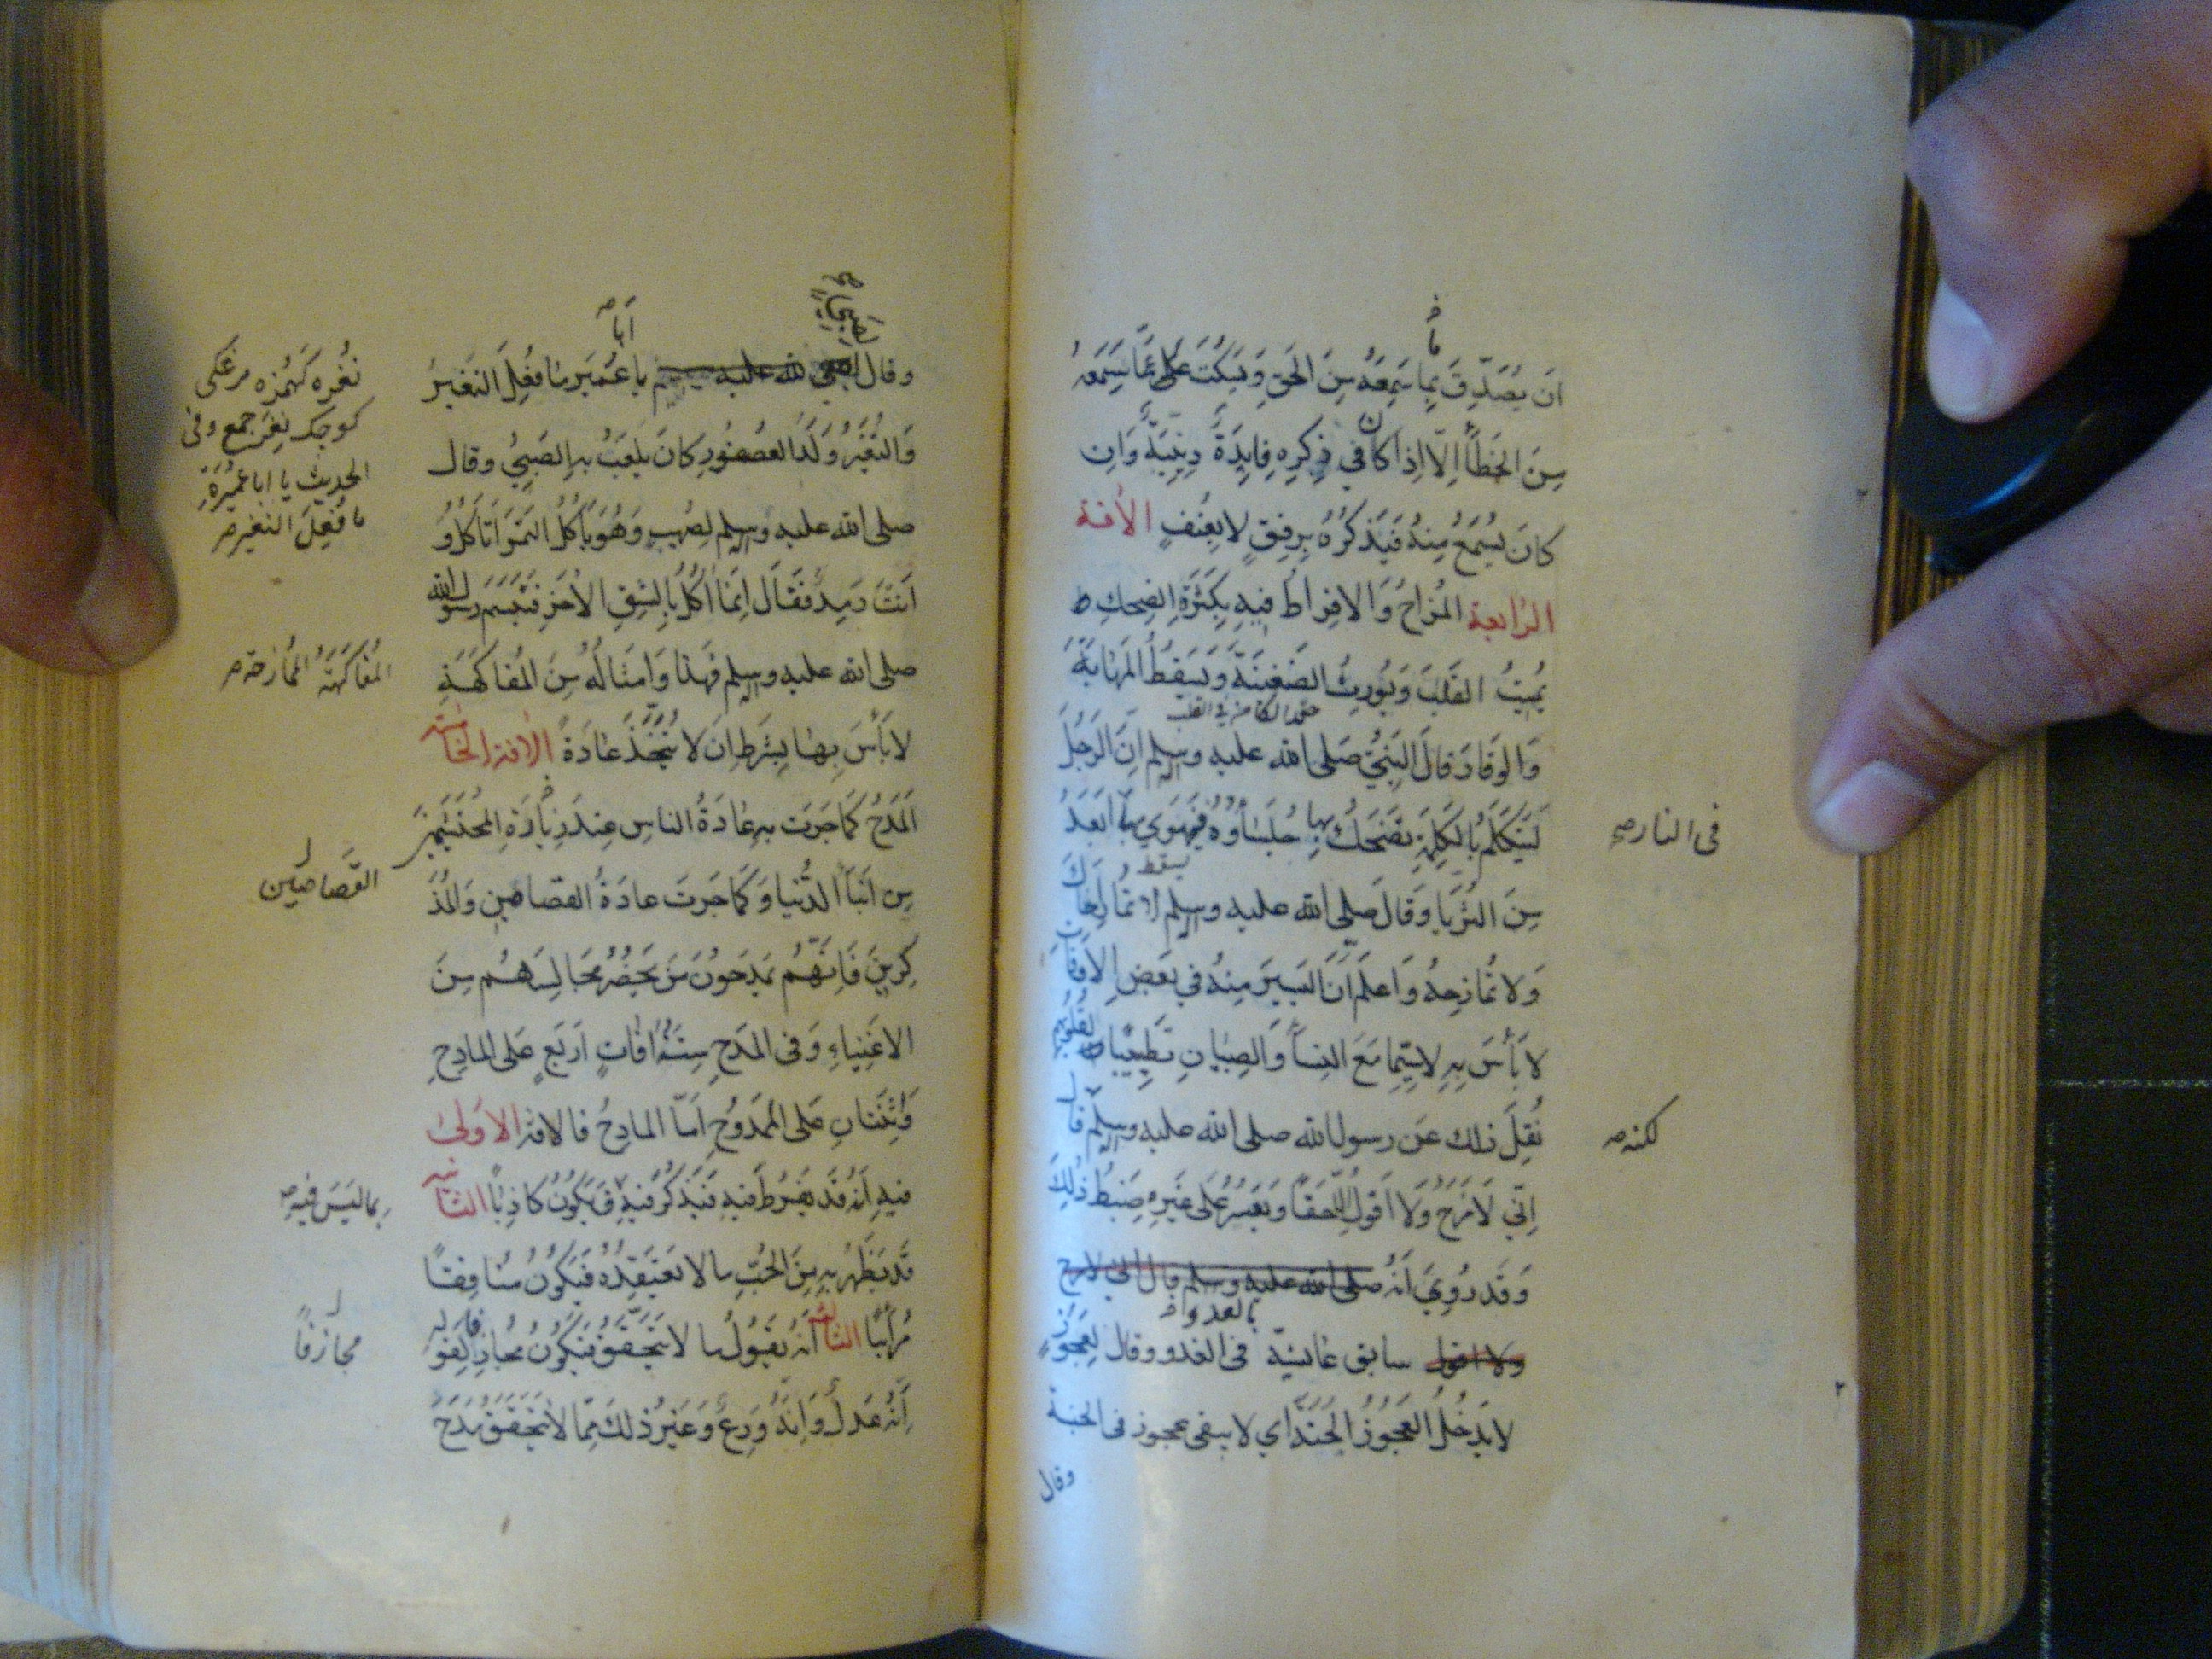 ان يصدق بما سمعه من الحق ويسكت عما سمعه
من الخطأ الا اذا كان في ذكره فايدة دينية وان
كان يسمع منه فيذكره برفق لا بعنف الآفة
الرابعة المزاح والافراط فيه بكثرة الضحك
يميت القلب ويورث الضغينة ويسقط المهابة
حقد الكامن في القلب
والوقار قال النبي صلى الله عليه وسلم ان الرجل
ليتكلم بالكلمة يضحك بها جلساؤه فيهوي بها ابعد
في النار
يسقط
من الثريا وقال صلى الله عليه وسلم لا تمار اخاك
ولا تمازحه واعلم ان اليسير منه في بعض الاوقات
لا بأس به لا سيما مع النسآء والصبيان تطييبا لقلوبهم
نقل ذلك عن رسول الله صلى الله عليه وسلم قال
لكنه
اني لامزح ولا اقول الا حقا ويعسر على غيره ضبط ذلك
وقد روي انه صلى الله عليه وسلم قال اني لامزح
بالعدو
ولا اقول سابق عائشة في العدو وقال لعجوز
لا يدخل العجوز الجنة اي لا يبقى عجوز في الجنة
وقال
ابا
وقال صلى الله عليه وسلم يا عمير ما فعل النغير
والنغير ولد العصفور كان يلعب به الصبي وقال
صلى الله عليه وسلم لصهيب وهو يأكل التمر اتأكل و
انت رمد فقال انما اكل بالشق الاخر فتبسم رسول الله
صلى الله عليه وسلم فهذا وامثاله من المفاكهة
لا بأس بها بشرط ان لا يتخذ عادة الآفة الخامسة
المدح كما جرت به عادة الناس عند زيارة المحتشمين
من ابناء الدنيا وكما جرت عادة القصاصين والمذ
كرين فانهم يمدحون من يحضر مجالسهم من
الاغنياء وفي المدح ستة افات اربع على المادح
واثنتان على الممدوح اما المادح فالافة الاولى
فيه انه قد يفرط فيه فيذكر فيه فيكون كاذبا الثانية
قد يظهر به من الحب ما لا يعتقده فيكون منافقا
مرائيا الثالثة انه يقول ما لا يتحققه فيكون مجازفا كقوله
انه عدل وانه ورع وغير ذلك مما لا يتحقق مدح
نغره كهمزه مرغكى
كوچک نغر جمع وفى
الحديث يا ابا عميرة
ما فعل النغير
المفاكهة الممازحة
القصاصين
بما ليس فيه
مجازفا